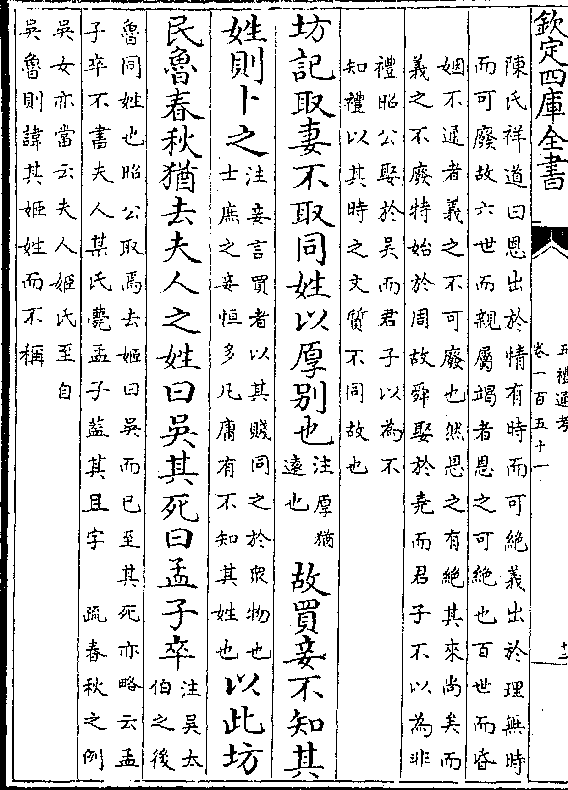 欽定四庫全書
五禮通考
卷一百五十一
陳氏祥道曰恩出於情有時而可絶義出於理無時
而可廢故六世而親屬竭者恩之可絶也百世而昏
姻不通者義之不可廢也然恩之有絶其來尚矣而
義之不廢特始於周故舜娶於堯而君子不以為非
禮昭公娶於吳而君子以為不
知禮以其時之文質不同故也
坊記取妻不取同姓以厚別也注厚猶遠也故買妾不知其
姓則卜之注妾言買者以其賤同之於衆物也士庶之妾恒多凡庸有不知其姓也以此坊
民魯春秋猶去夫人之姓曰吳其死曰孟子卒注吳太伯之後
魯同姓也昭公取焉去姬曰吳而已至其死亦略云孟
子卒不書夫人某氏薨孟子蓋其且字 疏春秋之例
吳女亦當云夫人姬氏至自
吳魯則諱其姬姓而不稱